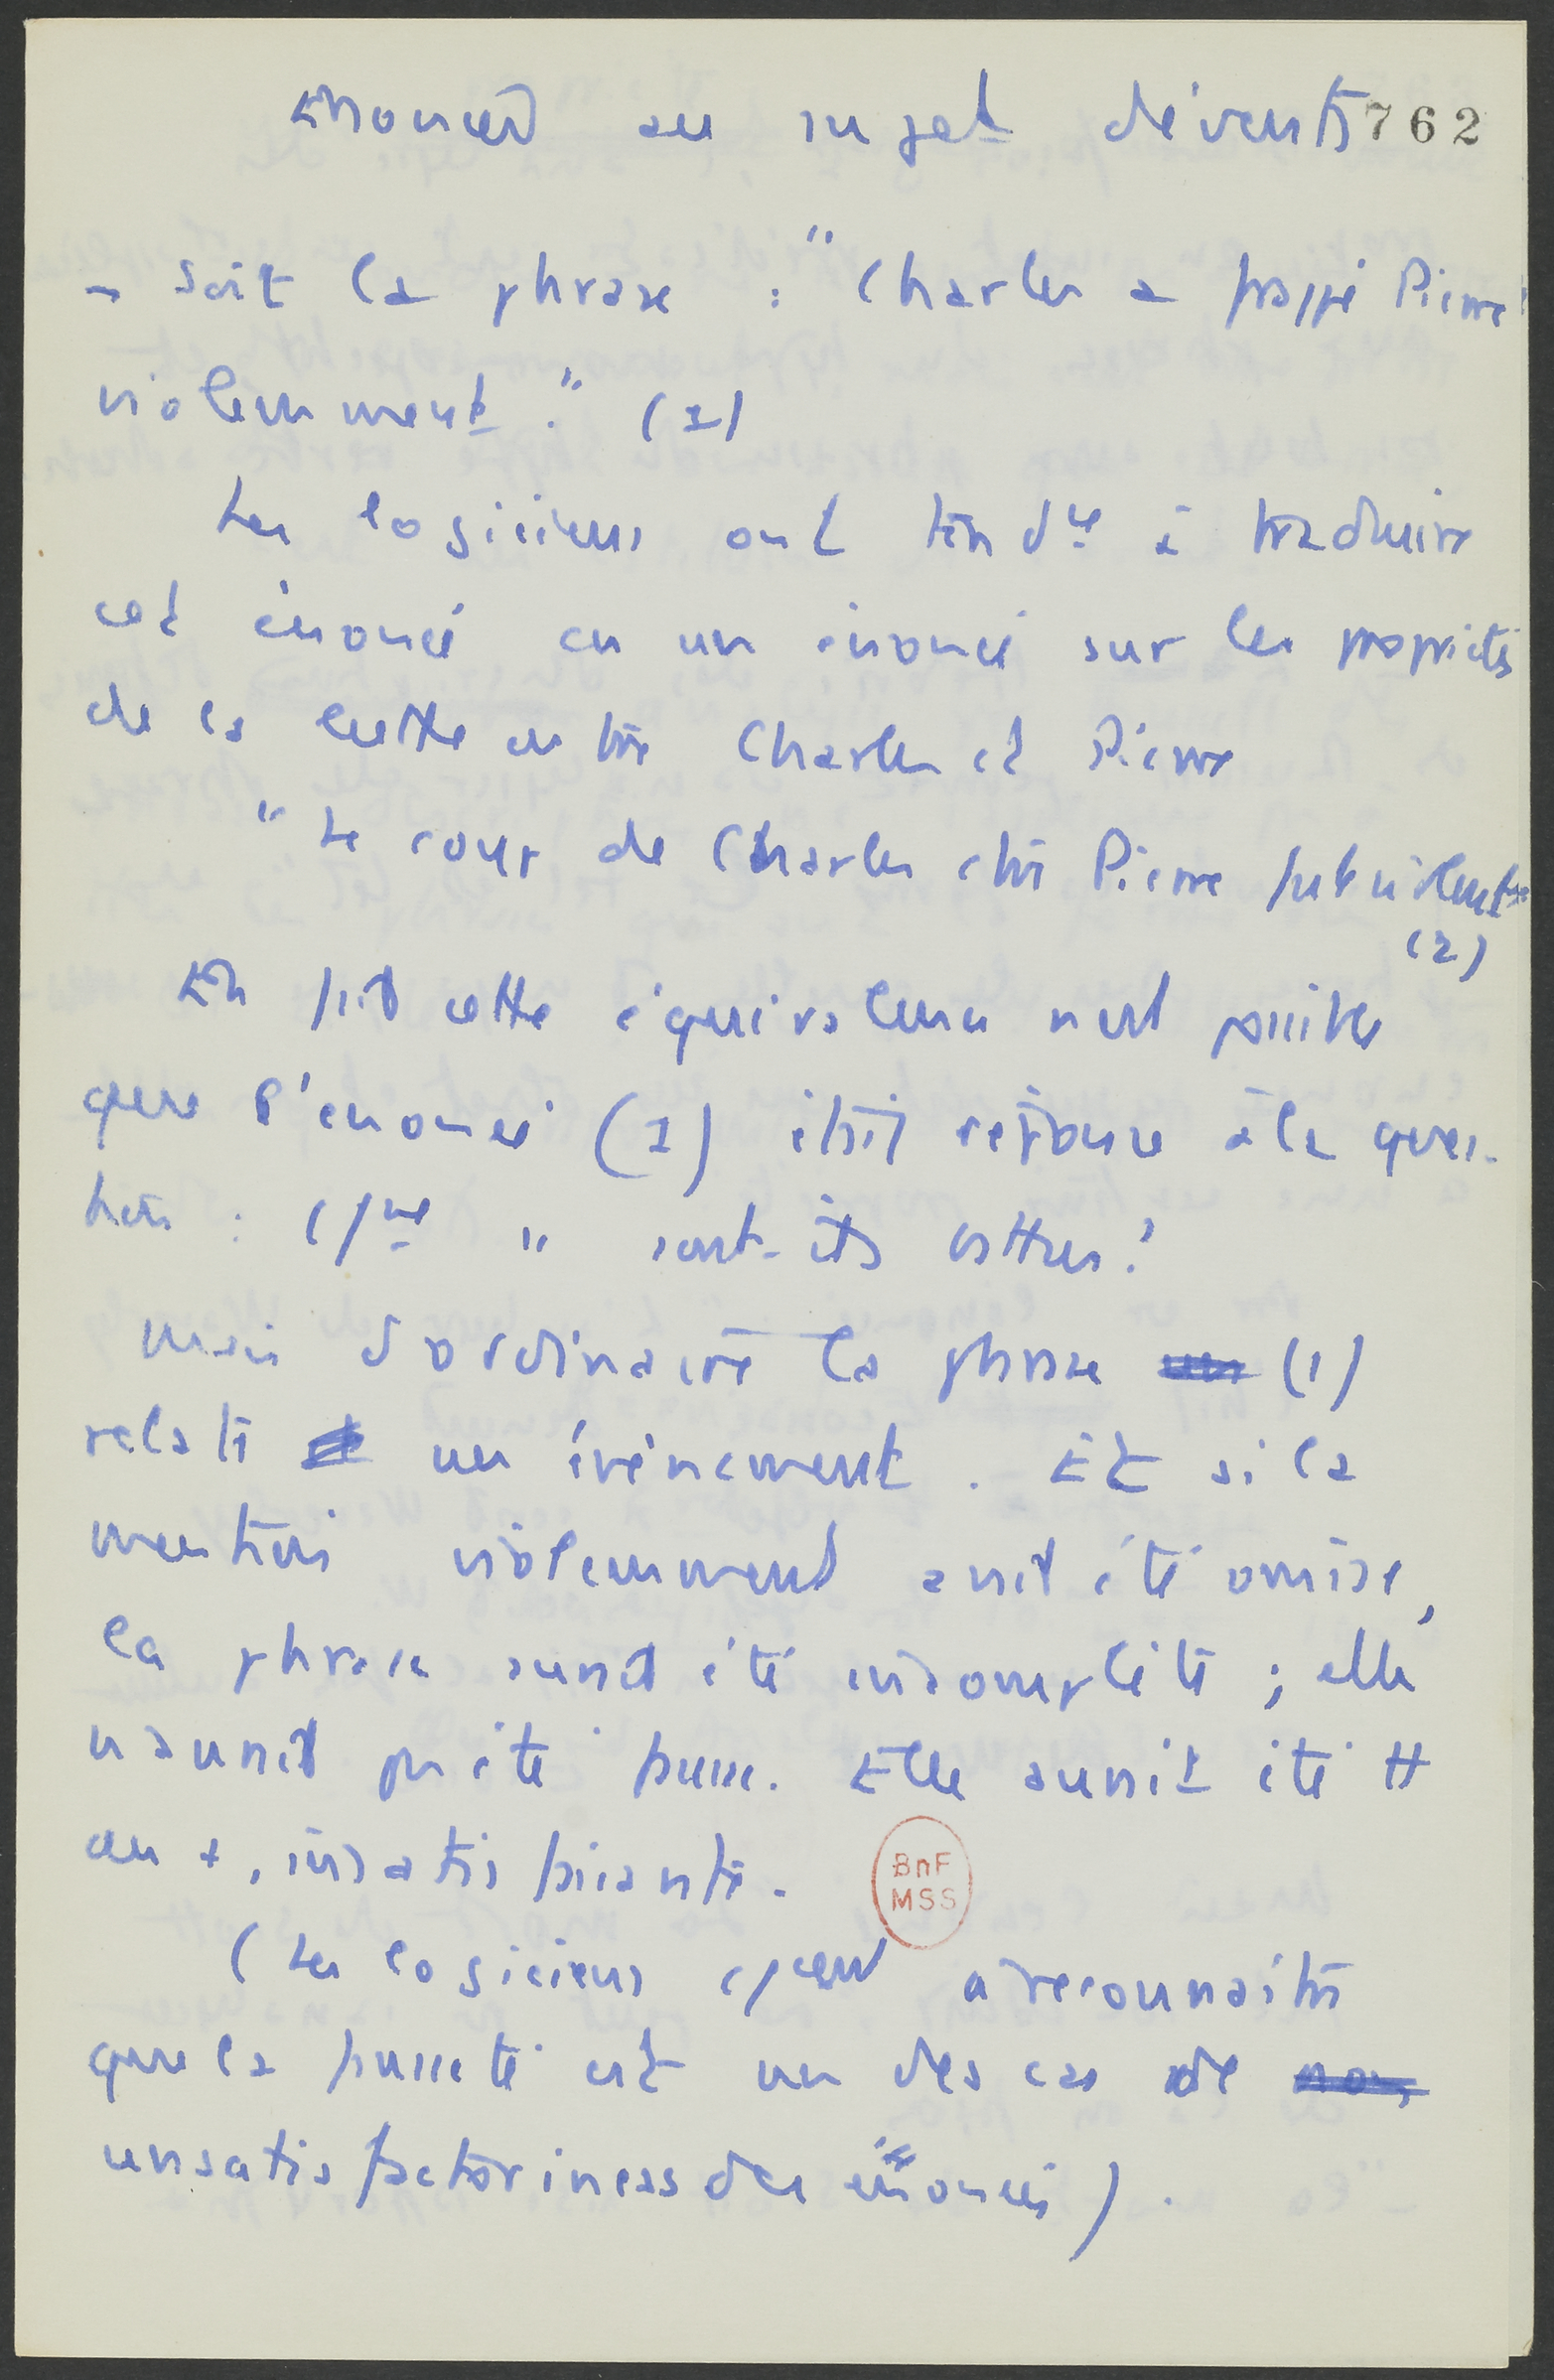 Enoncés au sujet d'évents 762
- Soit la phrase : "Charles a frappé Pierre
violemment." (1)
Les logiciens ont tendce à traduire
cet énoncé en un énoncé sur les propriétés
de la lutte entre Charles et Pierre
"Le coup de Charles ctre Pierre fut violent"
(2)
En fait cette équivalence n'est possible
que l'énoncé (1) était réponse à la ques-
tion : cment sont-ils battus?
Mais d'ordinaire la phrase (1)
relate un événement. Et si la
mention violemment avait été omise,
la phrase aurait été incomplète ; elle
n'aurait pas été fausse. Elle aurait été tt
au +, insatisfaisante.
BnF
MSS
(Les logiciens à reconnaître
que la fausseté est un des cas de
unsatisfactoriness des énoncés).